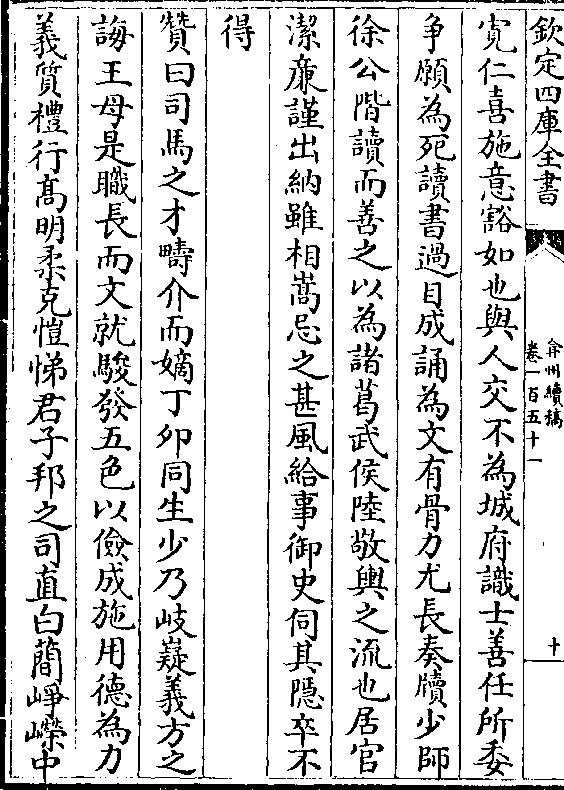 欽定四庫全書
弇州續稿
卷一百五十一
十
寛仁喜施意豁如也與人交不為城府識士善任所委
争願為死讀書過目成誦為文有骨力尤長奏牘少師
徐公階讀而善之以為諸葛武侯陸敬輿之流也居官
潔亷謹出納雖相嵩忌之甚風給事御史伺其隠卒不
得
贊曰司馬之才疇介而嫡丁夘同生少乃岐嶷義方之
誨王母是職長而文就駿發五色以儉成施用德為力
義質禮行髙明柔克愷悌君子邦之司直白簡崢嶸中